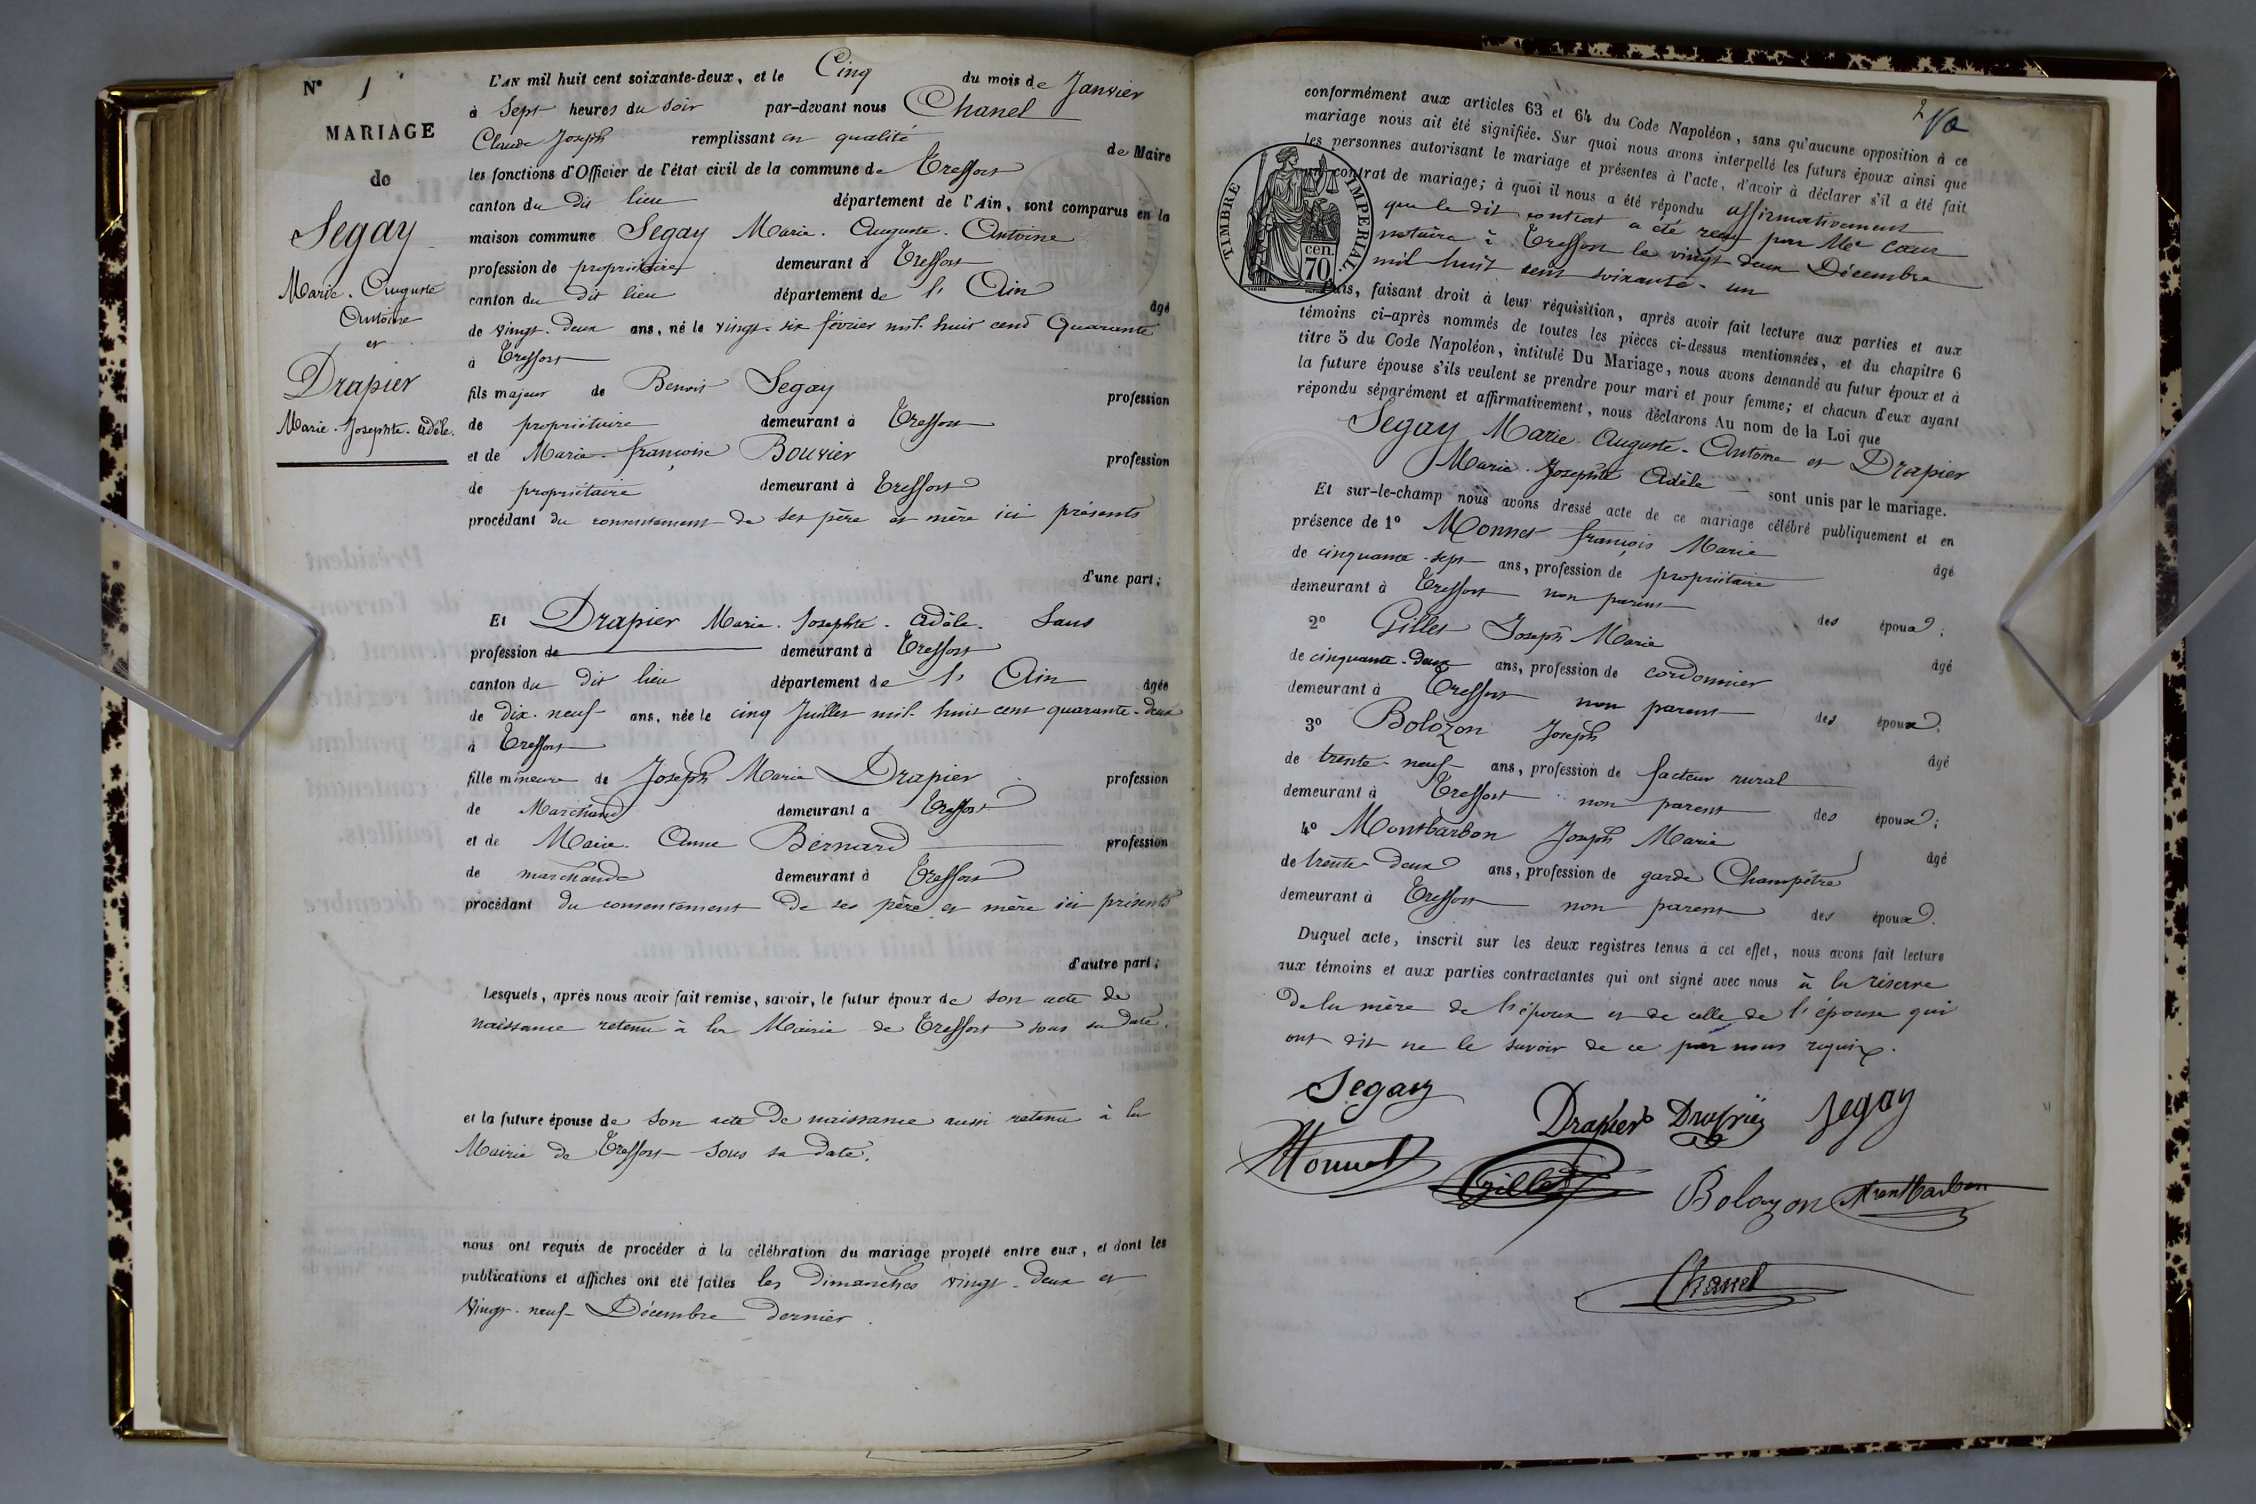 N° 1
MARIAGE
de
Segay
Marie. Auguste
Antoine
et
Drapier
Marie. Josephte. Adèle.
L'AN mil huit cent soixante-deux, et le Cinq du mois de Janvier
à Sept heures du Soir par-devant nous Chanel
Claude Joseph remplissant en qualité de Maire
les fonctions d'Officier de l'état civil de la commune de Treffort
canton du dit lieu département de l'Ain, sont comparus en la
maison commune Segay Marie. Auguste. Antoine
profession de propriétaire demeurant à Treffort
canton du dit lieu département de l'Ain âgé
de vingt-deux ans, né le vingt-six février mil huit cent Quarante
à Treffort
fils majeur de Benoit Segay profession
de propriétaire demeurant à Treffort
et de Marie françoise Bouvier profession
de propriétaire demeurant à Treffort
procédant du consentement de ses père et mère ici présents
d'une part;
Et Drapier Marie. Josephte. Adèle. Sans
profession de demeurant à Treffort
canton du dit lieu département de l'Ain âgée
de Dix-neuf ans, née le cinq Juillet mil huit cent quarante-deux
à Treffort
fille mineure de Joseph Marie Drapier profession
de Marchand demeurant à Treffort
et de Marie. Anne Bernard profession
de marchande demeurant à Treffort
procédant du consentement de ses père et mère ici présents
d'autre part;
Lesquels, après nous avoir fait remise, savoir, le futur époux de son acte de
naissance retenu à la Mairie de Treffort sous sa date.
et la future épouse de son acte de naissance aussi retenu à la
Mairie de Treffort sous sa date.
nous ont requis de procéder à la célébration du mariage projeté entre eux, et dont les
publications et affiches ont été faites les dimanches vingt-deux et
vingt-neuf Décembre dernier.
2
conformément aux articles 63 et 64 du Code Napoléon, sans qu'aucune opposition à ce
mariage nous ait été signifiée. Sur quoi nous avons interpellé les futurs époux ainsi que
les personnes autorisant le mariage et présentes à l'acte, d'avoir à déclarer s'il a été fait
un contrat de mariage; à quoi il nous a été répondu affirmativement
que le dit contrat a été reçu par Me Cœur
notaire à Treffort le vingt deux Décembre
mil huit cent soixante-un
TIMBRE IMPERIAL.
70 cen.
Puis, faisant droit à leur réquisition, après avoir fait lecture aux parties et aux
témoins ci-après nommés de toutes les pièces ci-dessus mentionnées, et du chapitre 6
titre 5 du Code Napoléon, intitulé Du Mariage, nous avons demandé au futur époux et à
la future épouse s'ils veulent se prendre pour mari et pour femme; et chacun d'eux ayant
répondu séparément et affirmativement, nous déclarons Au nom de la Loi que
Segay Marie. Auguste. Antoine et Drapier
Marie. Josephte Adèle sont unis par le mariage.
Et sur-le-champ nous avons dressé acte de ce mariage célébré publiquement et en
présence de 1° Monnet françois Marie âgé
de cinquante-sept ans, profession de propriétaire
demeurant à Treffort non parent des époux;
2° Gillet Joseph Marie âgé
de cinquante-deux ans, profession de cordonnier
demeurant à Treffort non parent des époux;
3° Bolozon Joseph âgé
de trente-neuf ans, profession de facteur rural
demeurant à Treffort non parent des époux;
4° Montbarbon Joseph Marie âgé
de trente-deux ans, profession de garde Champêtre
demeurant à Treffort non parent des époux.
Duquel acte, inscrit sur les deux registres tenus à cet effet, nous avons fait lecture
aux témoins et aux parties contractantes qui ont signé avec nous à la réserve
de la mère de l'époux et de celle de l'épouse qui
ont dit ne le savoir de ce par nous requis.
Segay
Drapier Drapier Segay
Monnet Gillet Bolozon Montbarbon
Chanel